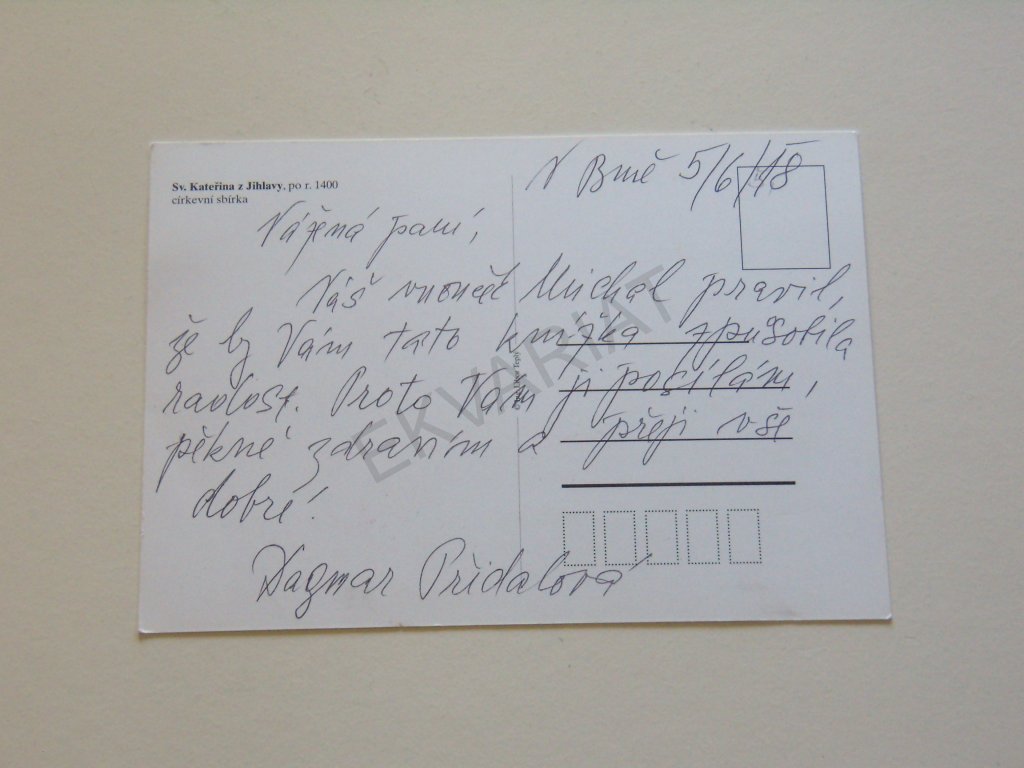 Sv. Kateřina z Jihlavy, po r. 1400
církevní sbírka
V Brně 5/6/18
Vážená paní,
Váš vnouček Michal pravil,
že by Vám tato knížka způsobila
radost. Proto Vám ji posílám,
pěkně zdravím a přeji vše
dobré!
Dagmar Přidalová
EKVARIAT